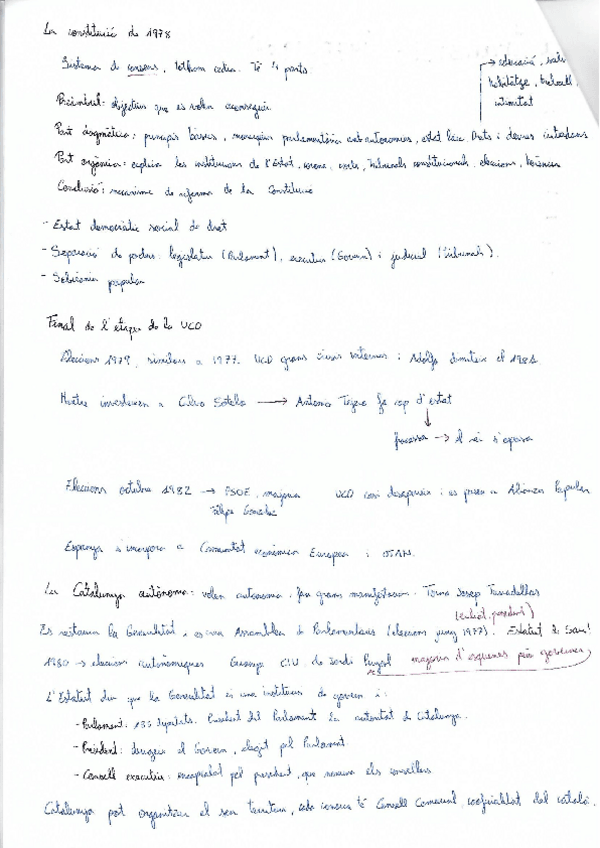 La constitució de 1978
Sistema de consens, tothom cedia. Té 4 parts
→ educació, salut,
habitatge, treball,
intimitat
Preàmbul: objectius que es volen aconseguir
Part dogmàtica: principis bàsics, monarquia parlamentària amb autonomies, estat laic. Drets i deures ciutadans
Part orgànica: explica les institucions de l'Estat, corona, corts, tribunals constitucionals, eleccions,
Conclusió: mecanisme de reforma de la Constitució
- Estat democràtic social de dret
- Separació de poders: legislatiu (Parlament), executiu (Govern) i judicial (tribunals).
- Sobirania popular
Final de l'etapa de la UCD
Eleccions 1979, similars a 1977. UCD grans crisis internes i Adolfo dimiteix el 1981.
Mentre investeixen a Calvo Sotelo → Antonio Tejero fa cop d'estat
↓
fracassa → el rei s'oposa
Eleccions octubre 1982 → PSOE majoria UCD casi desapareix i es passen a Alianza Popular
Felipe González
Espanya s'incorpora a Comunitat econòmica Europea i OTAN.
La Catalunya autònoma: volen autonomia, fan grans manifestacions. Torna Josep Tarradellas
president)
Es restaura la Generalitat, es crea Assemblea de Parlamentaris (eleccions juny 1977). Estatut de Sau!
1980 → eleccions autonòmiques Guanya CIU de Jordi Pujol majoria d'esquerres però
L'Estatut diu que la Generalitat és una institució de govern i:
- Parlament: 135 diputats. President del Parlament 2a autoritat de Catalunya.
- President: dirigeix el Govern, elegit pel Parlament
- Consell executiu: encapçalat pel president, que nomena els consellers
Catalunya pot organitzar el seu territori, cada comarca té Consell Comarcal cooficialitat del català.